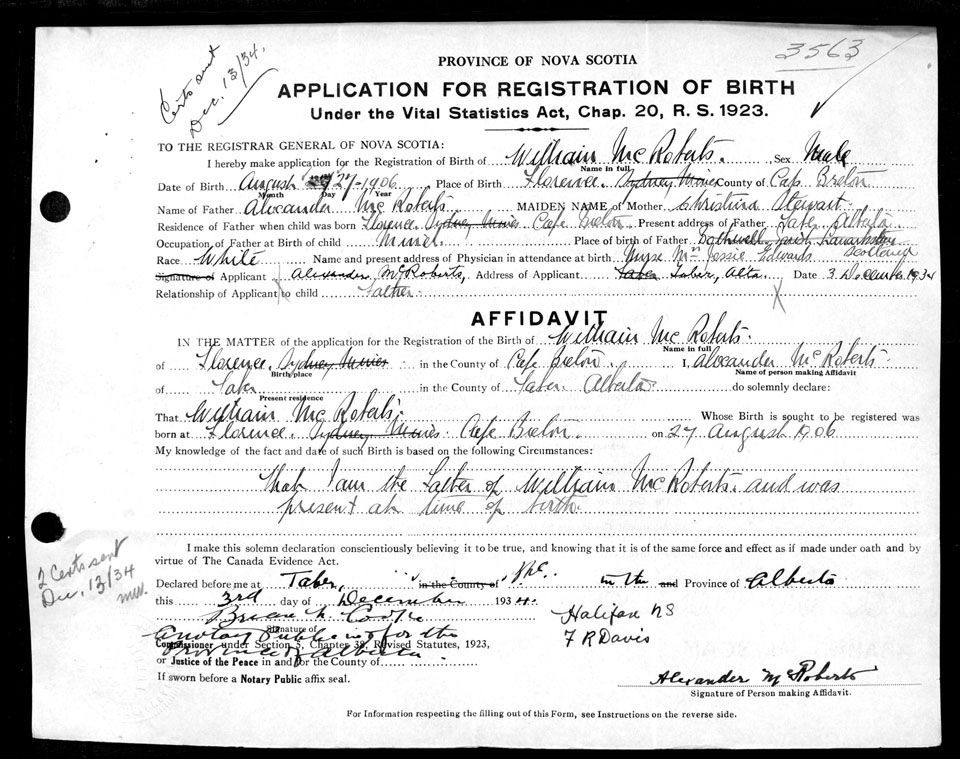 3563
Certs sent
Dec. 13/34.
PROVINCE OF NOVA SCOTIA
APPLICATION FOR REGISTRATION OF BIRTH
Under the Vital Statistics Act, Chap. 20, R. S. 1923.
TO THE REGISTRAR GENERAL OF NOVA SCOTIA:
I hereby make application for the Registration of Birth of William McRoberts. Sex Male
Name in full
Date of Birth August 27-1906 Place of Birth Florence. Sydney Mines County of Cape Breton
Month Day Year
Name of Father Alexander McRoberts. MAIDEN NAME of Mother Christina Stewart.
Residence of Father when child was born Florence, Sydney Mines Cape Breton Present address of Father Taber Alberta.
Occupation of Father at Birth of child Miner. Place of birth of Father Bothwell, Lanarkshire Scotland
Race White Name and present address of Physician in attendance at birth Nurse Mrs Jessie Edwards
Signature of Applicant Alexander McRoberts, Address of Applicant Taber Taber, Alta. Date 3 December 1934
Relationship of Applicant to child Father.
AFFIDAVIT
IN THE MATTER of the application for the Registration of the Birth of William McRoberts.
Name in full
of Florence, Sydney Mines in the County of Cape Breton. I, Alexander McRoberts.
Birthplace Name of person making Affidavit
of Taber in the County of Taber Alberta. do solemnly declare:
Present residence
That William McRoberts. Whose Birth is sought to be registered was
born at Florence. Sydney Mines Cape Breton. on 27 August 1906
My knowledge of the fact and date of such Birth is based on the following Circumstances:
That I am the Father of William McRoberts. and was
present at time of birth.
I make this solemn declaration conscientiously believing it to be true, and knowing that it is of the same force and effect as if made under oath and by
virtue of The Canada Evidence Act.
2 Certs sent
Dec, 13/34
Declared before me at Taber, in the County of in the and Province of Alberta
this 3rd day of December 1934.
Halifax NS
F R Davis
Signature of
A Notary Public in & for the
Commissioner under Section 5, Chapter 38, Revised Statutes, 1923,
Province of Alberta
or Justice of the Peace in and for the County of
If sworn before a Notary Public affix seal.
Alexander McRoberts
Signature of Person making Affidavit.
For Information respecting the filling out of this Form, see Instructions on the reverse side.